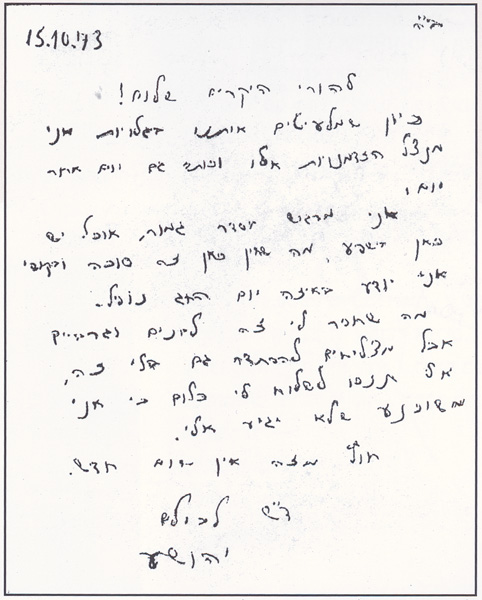 בס"ד
15.10.73
להורי היקרים שלום!
כיון שמלעיטים אותנו בגלויות אני
מנצל הזדמנויות אלו וכותב גם יום אחר
יום.
אני מרגיש בסדר גמור, אוכל יש
כאן בשפע, מה שאין כאן זה סוכה ובקושי
אני יודע באיזה יום החג נופל.
מה שחסר לי זה לבנים וגרביים
אבל מצליחים להסתדר גם בלי זה,
אל תנסו לשלוח לי כלום כי אני
משוכנע שלא יגיע אלי.
חוץ מזה אין שום חדש.
ד"ש לכולם
יהושע